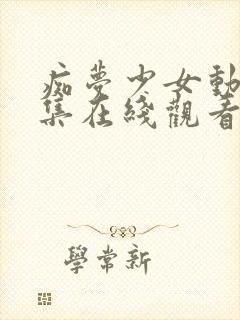 痴夢少女動
集在綫觀看
學常新